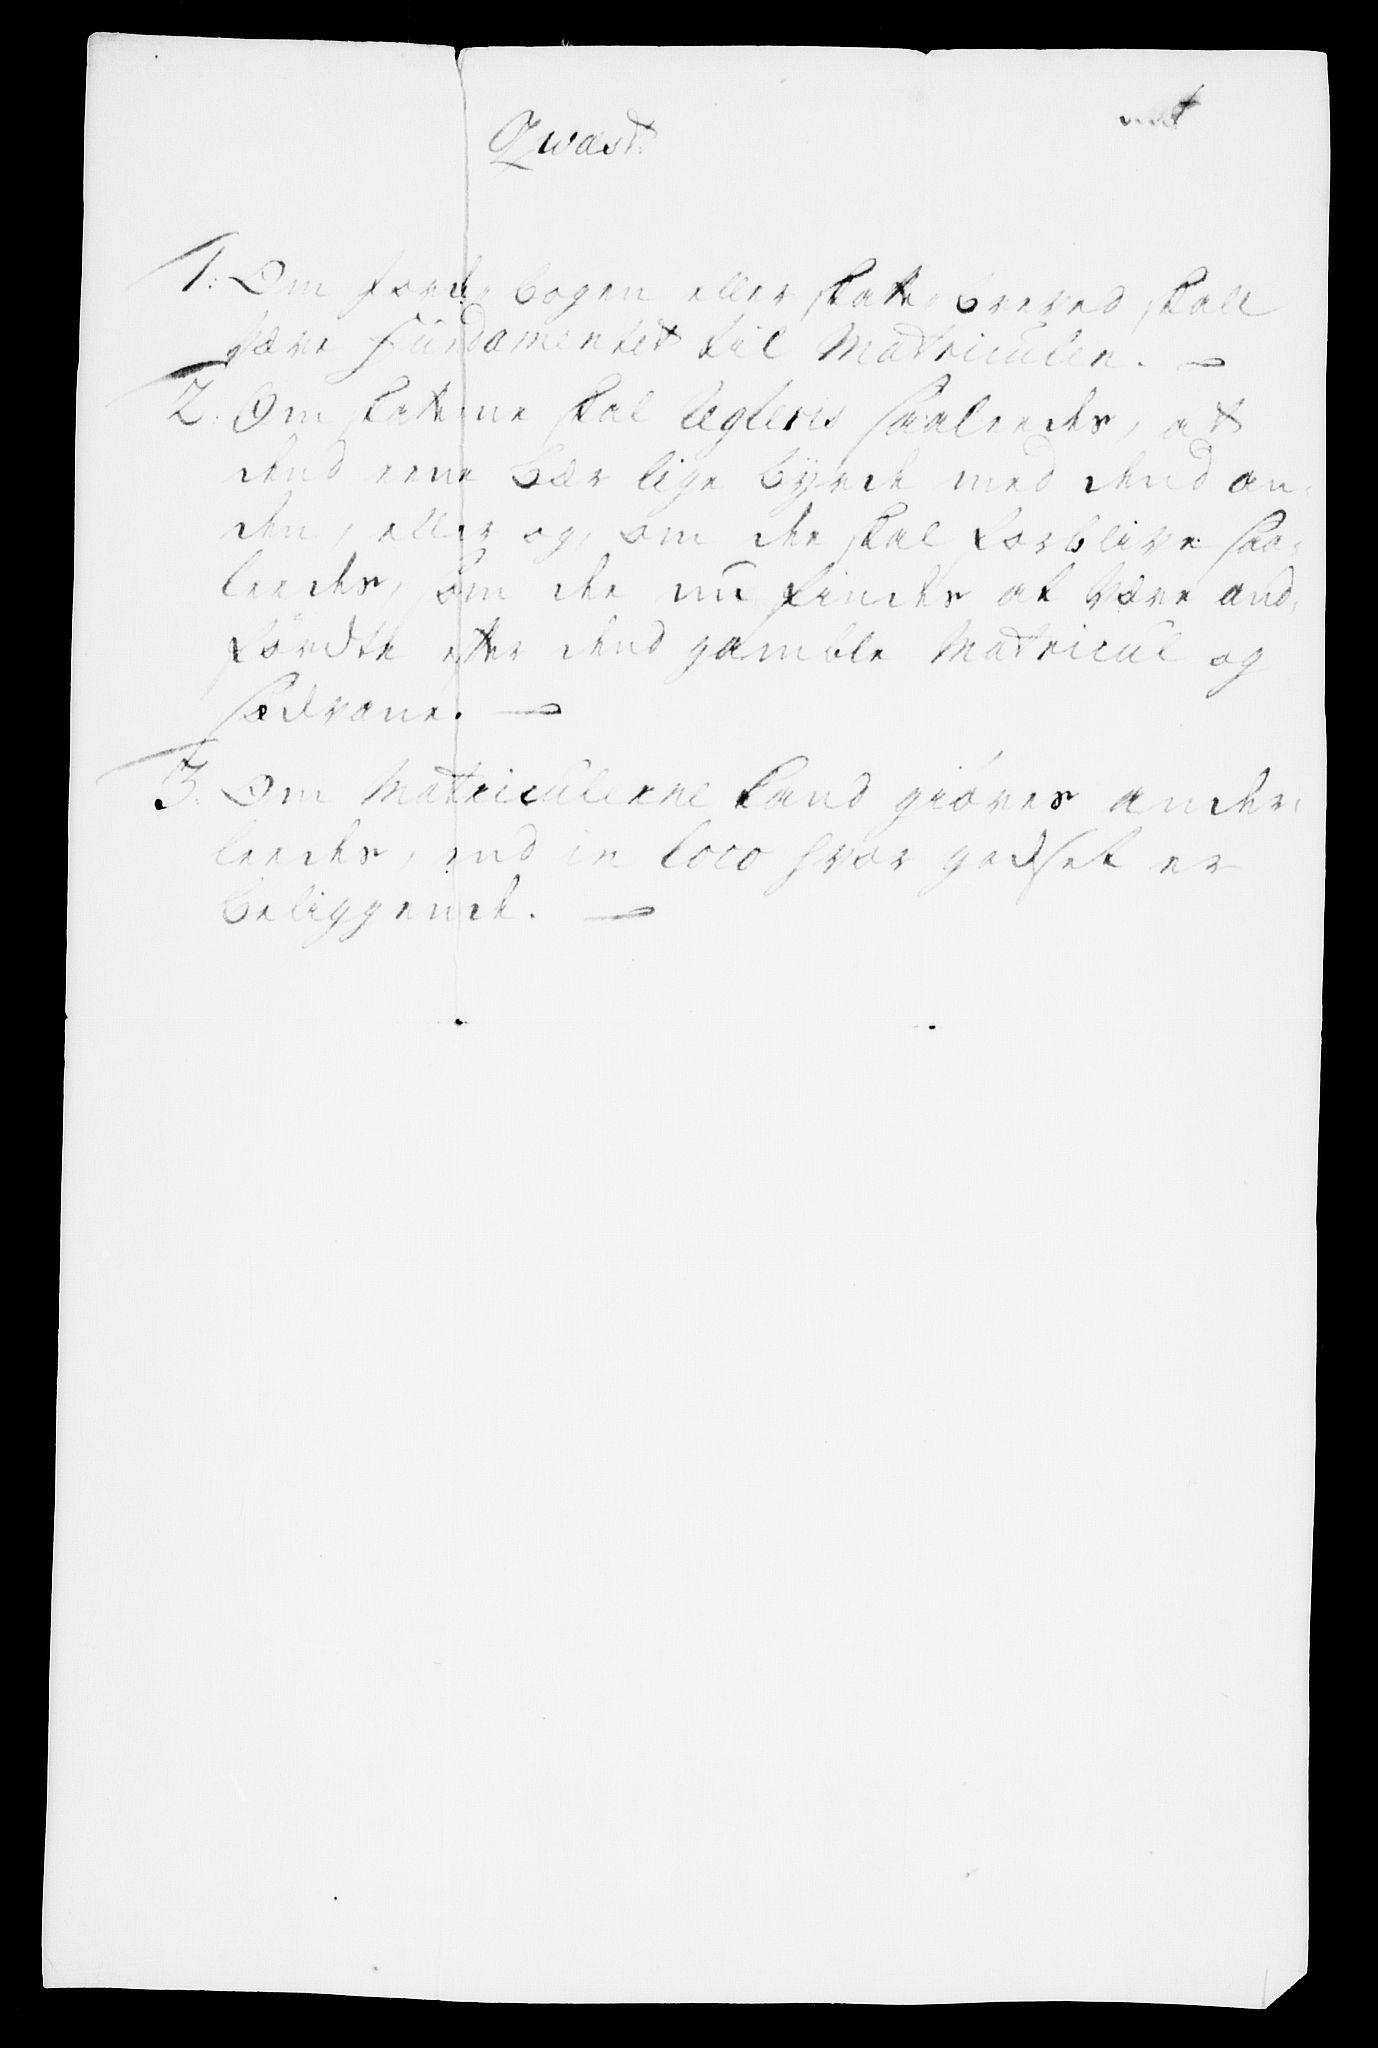 Qwæst:
1. Om Jord, bogen eller skatte, breved skall
være Fündamentet til Matriculen. —
2. Om skatterne skal legleris saaleedes, at
dend eene bær lige byrde med dend an,
den, eller og, om de skal forblive saa,
leedes, som de nü findes at være and,
fördte efter dend gamble Matricul og
sædvane. —
3. Om Matriculerne kand giöres ander,
leedes, end in loco hvor godset er
beliggende. —